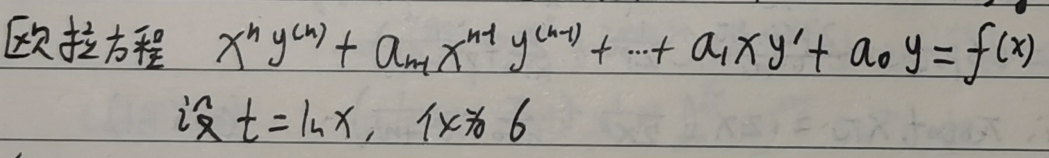 欧拉方程 xⁿ y⁽ⁿ⁾ + aₙ₋₁ xⁿ⁻¹ y⁽ⁿ⁻¹⁾ + ⋯ + a₁ x y′ + a₀ y = f(x)
设 t = ln x, 代为 6